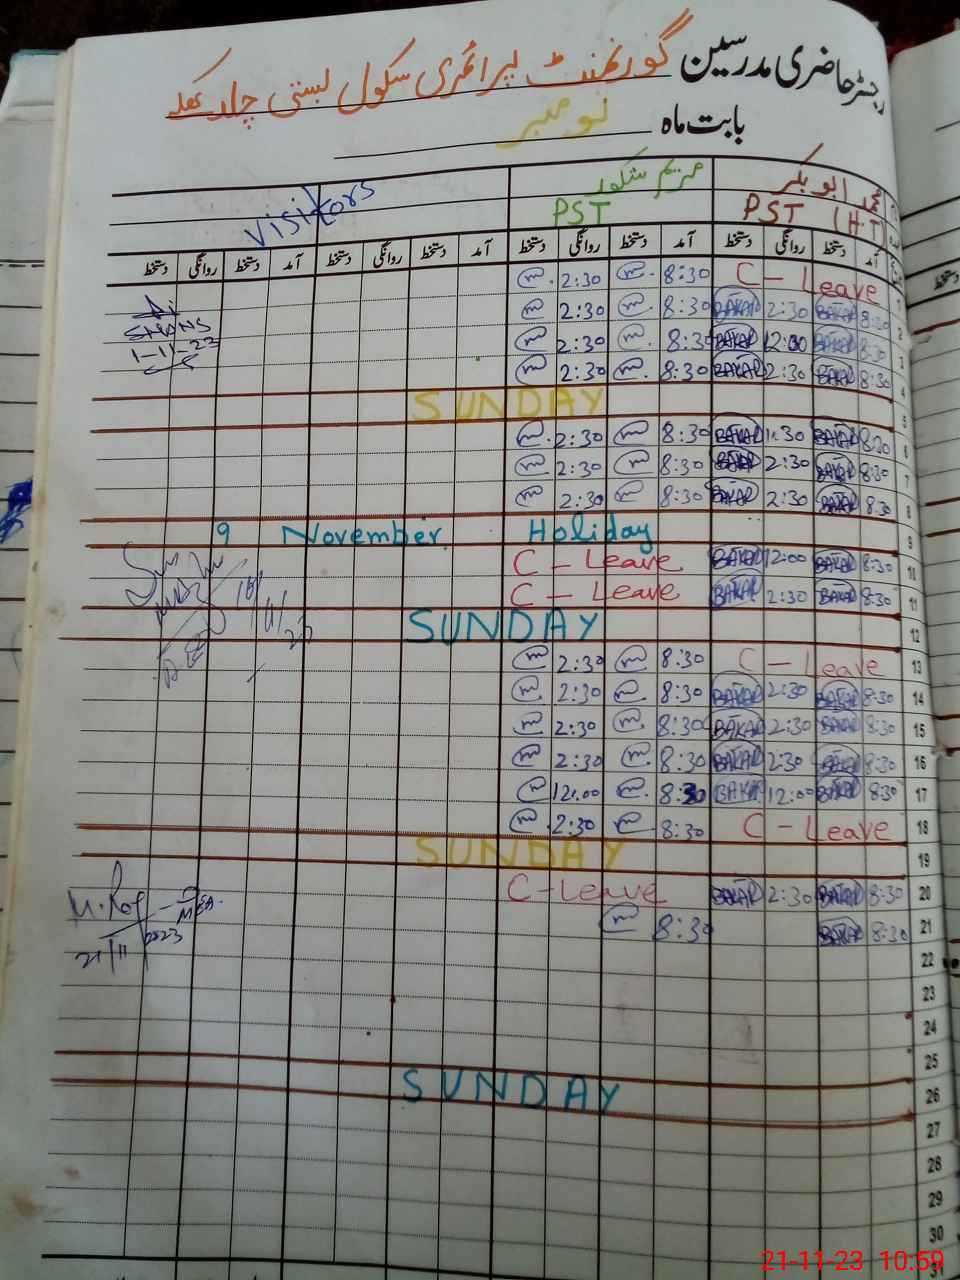 رجسٹر حاضری مدرسین گورنمنٹ پرائمری سکول بستی
بابت ماہ نومبر
محمد ابوبکر مریم شکور Visitors
PST (H.T) PST
آمد دستخط روانگی دستخط آمد دستخط روانگی دستخط آمد دستخط روانگی دستخط آمد دستخط روانگی دستخط
2:30 8:30 C - Leave 1
2:30 8:30 BAKAR 2:30 BAKAR 8:30 2
2:30 8:30 BAKAR 12:00 BAKAR 8:30 3
2:30 8:30 BAKAR 2:30 BAKAR 8:30 4
1-11-23
SUNDAY 5
2:30 8:30 BAKAR 1:30 BAKAR 8:30 6
2:30 8:30 BAKAR 2:30 BAKAR 8:30 7
2:30 8:30 BAKAR 2:30 BAKAR 8:30 8
9 November Holiday 9
C - Leave BAKAR 12:00 BAKAR 8:30 10
C - Leave BAKAR 2:30 BAKAR 8:30 11
SUNDAY 12
2:30 8:30 C - Leave 13
2:30 8:30 BAKAR 2:30 BAKAR 8:30 14
2:30 8:30 BAKAR 2:30 BAKAR 8:30 15
2:30 8:30 BAKAR 2:30 BAKAR 8:30 16
12:00 8:30 BAKAR 12:00 BAKAR 8:30 17
2:30 8:30 C - Leave 18
SUNDAY 19
C - Leave BAKAR 2:30 BAKAR 8:30 20
8:30 BAKAR 8:30 21
MEA
21/11/2023
22
23
24
25
SUNDAY 26
27
28
29
30
31
21-11-23 10:59